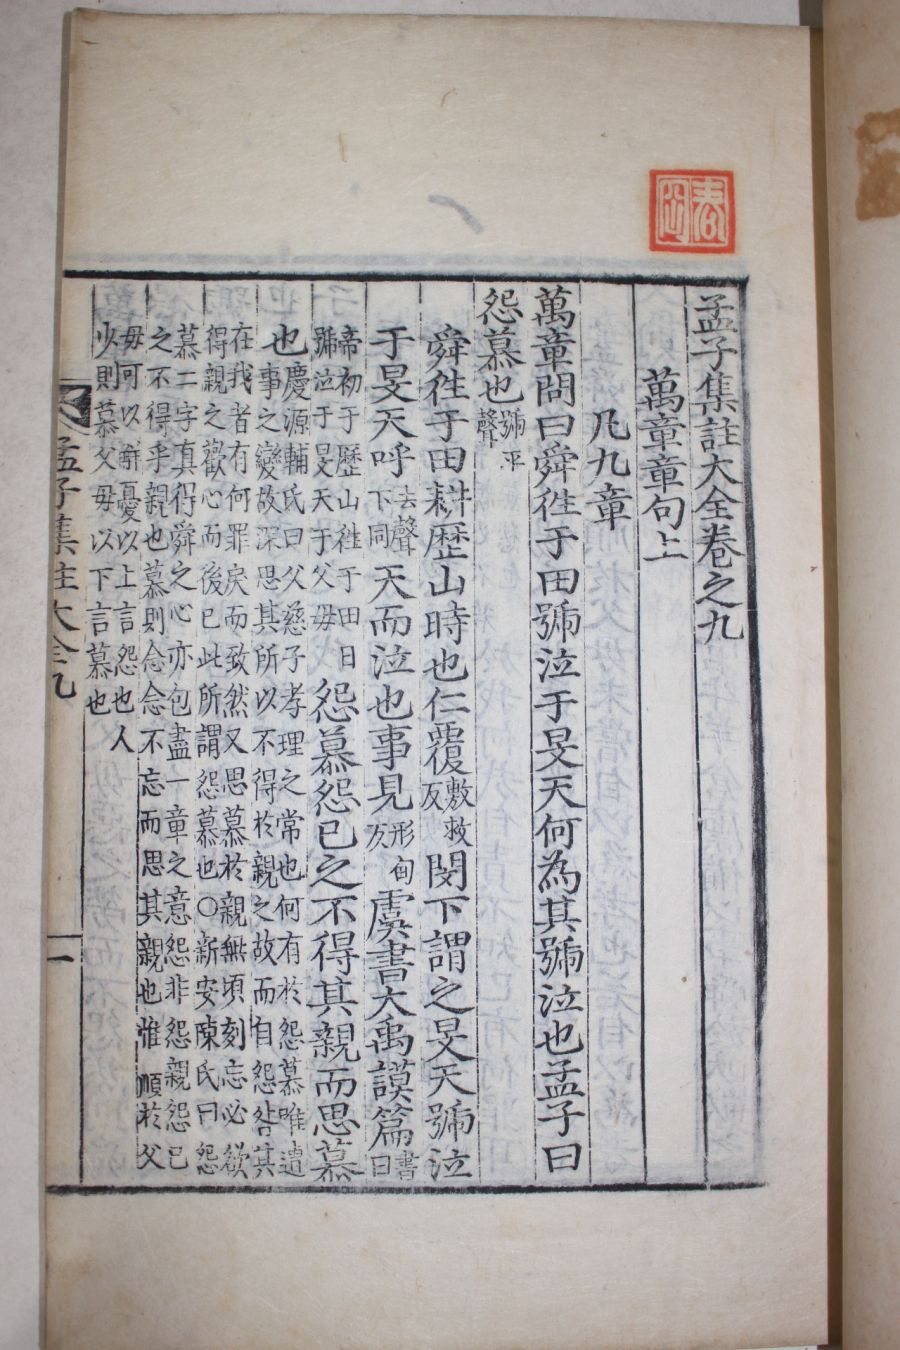 孟子集註大全卷之九
萬章章句上
凡九章
萬章問曰舜徃于田號泣于旻天何為其號泣也孟子曰
怨慕也號平聲
舜徃于田耕歷山時也仁覆敷救反閔下謂之旻天號泣
于旻天呼去聲下同天而泣也事見形甸反虞書大禹謨篇書曰
帝初于歷山徃于田日號泣于旻天于父母怨慕怨己之不得其親而思慕
也慶源輔氏曰父慈子孝理之常也何有於怨慕唯遭
事之變故深思其所以不得於親之故而自怨咎其
在我者有何罪戾而致然又思慕於親無頃刻忘必欲
得親之歡心而後已此所謂怨慕也○新安陳氏曰怨
慕二字真得舜之心亦包盡一章之意怨非怨親怨己
之不得乎親也慕則念念不忘而思其親也惟順於父
母可以解憂以上言怨也人
少則慕父母以下言慕也
孟子集註大全九
一